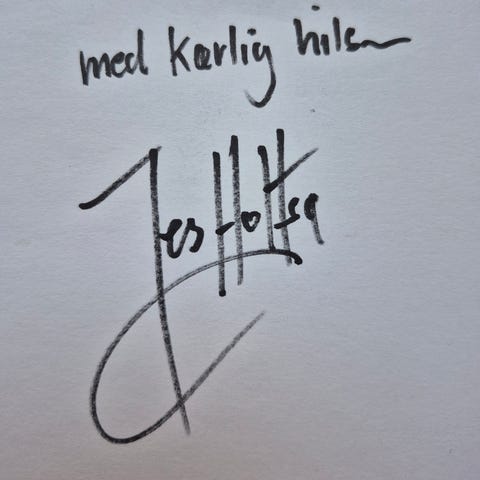 med Kærlig hilsn
Jes Holtsø